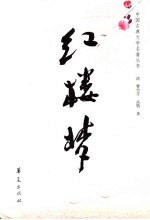 红楼梦
中国古典文学名著丛书
清 曹雪芹 高鹗 著
华夏出版社